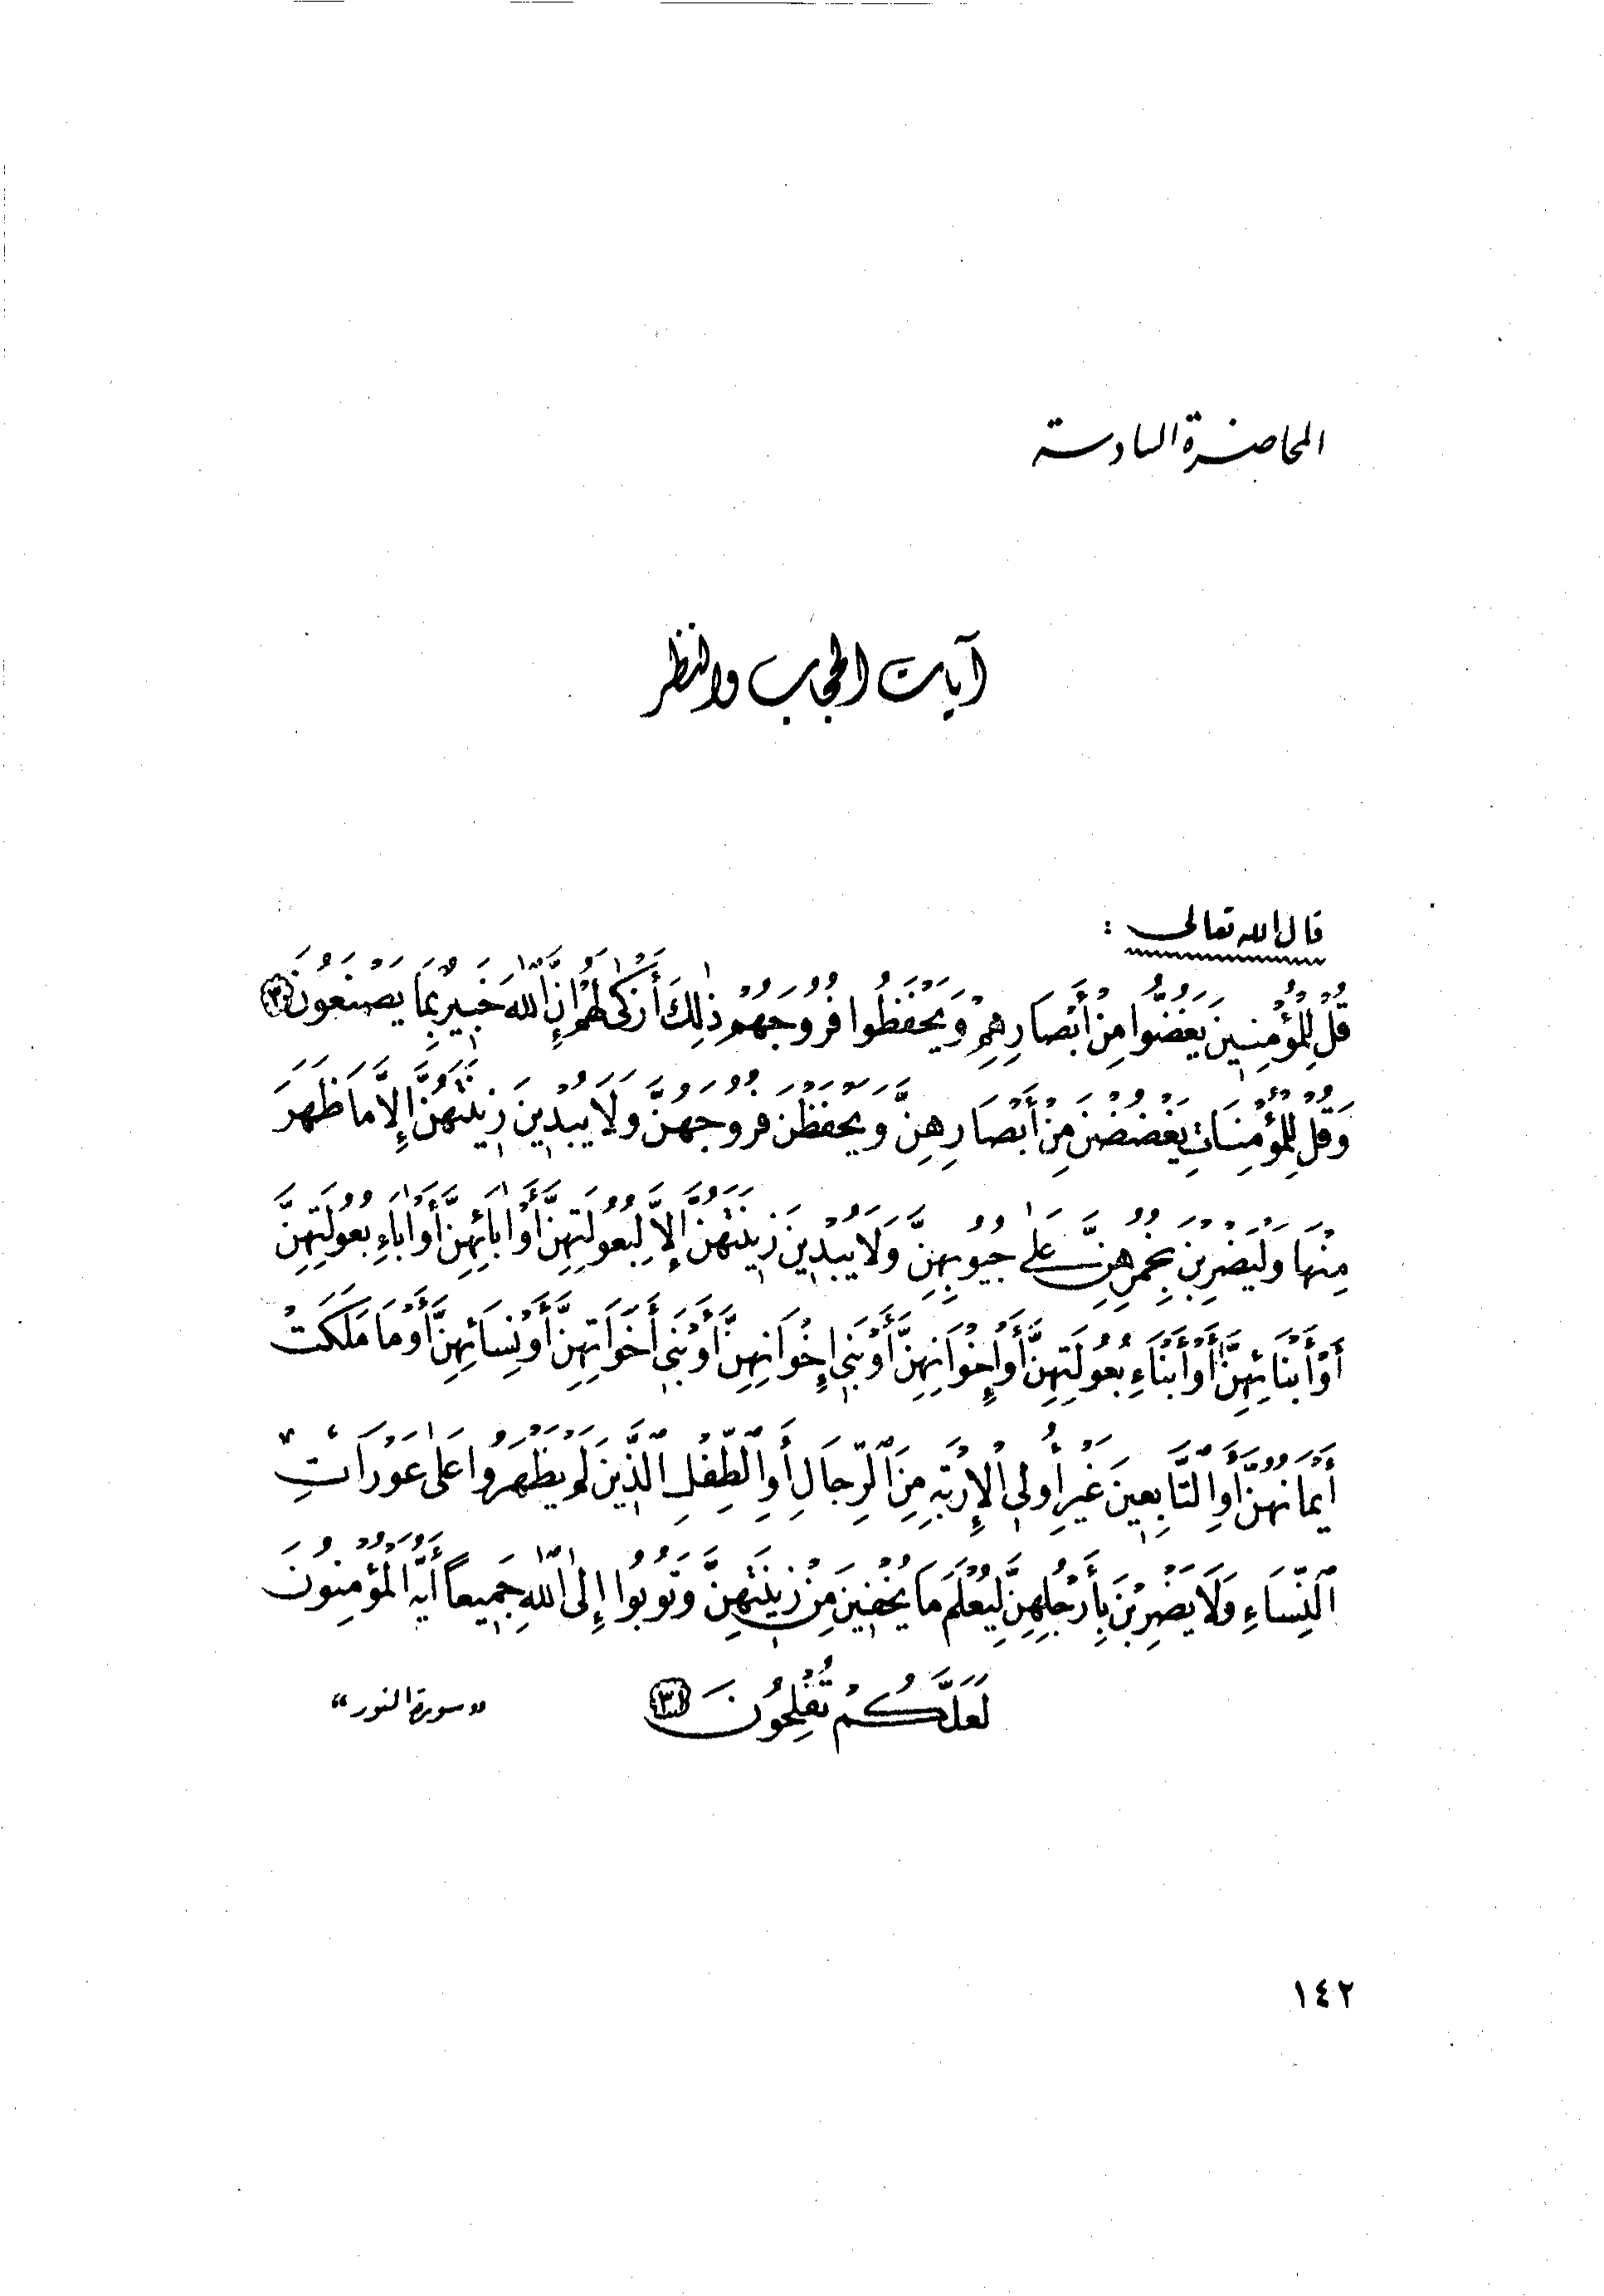 المحاضرة السادسة
آيات الحجاب والنظر
قال الله تعالى :
قُلْ لِلْمُؤْمِنِينَ يَغُضُّوا مِنْ أَبْصَارِهِمْ وَيَحْفَظُوا فُرُوجَهُمْ ذٰلِكَ أَزْكىٰ لَهُمْ إِنَّ اللّٰهَ خَبِيرٌ بِمَا يَصْنَعُونَ ﴿٣٠﴾
وَقُلْ لِلْمُؤْمِنَاتِ يَغْضُضْنَ مِنْ أَبْصَارِهِنَّ وَيَحْفَظْنَ فُرُوجَهُنَّ وَلَا يُبْدِينَ زِينَتَهُنَّ إِلَّا مَا ظَهَرَ
مِنْهَا وَلْيَضْرِبْنَ بِخُمُرِهِنَّ عَلىٰ جُيُوبِهِنَّ وَلَا يُبْدِينَ زِينَتَهُنَّ إِلَّا لِبُعُولَتِهِنَّ أَوْ اٰبَائِهِنَّ أَوْ اٰبَاءِ بُعُولَتِهِنَّ
أَوْ أَبْنَائِهِنَّ أَوْ أَبْنَاءِ بُعُولَتِهِنَّ أَوْ إِخْوَانِهِنَّ أَوْ بَنِي إِخْوَانِهِنَّ أَوْ بَنِي أَخَوَاتِهِنَّ أَوْ نِسَائِهِنَّ أَوْ مَا مَلَكَتْ
أَيْمَانُهُنَّ أَوِ التَّابِعِينَ غَيْرِ أُولِي الْإِرْبَةِ مِنَ الرِّجَالِ أَوِ الطِّفْلِ الَّذِينَ لَمْ يَظْهَرُوا عَلىٰ عَوْرَاتِ
النِّسَاءِ وَلَا يَضْرِبْنَ بِأَرْجُلِهِنَّ لِيُعْلَمَ مَا يُخْفِينَ مِنْ زِينَتِهِنَّ وَتُوبُوا إِلَى اللّٰهِ جَمِيعاً أَيُّهَ الْمُؤْمِنُونَ
لَعَلَّكُمْ تُفْلِحُونَ ﴿٣١﴾ «سورة النور»
١٤٢